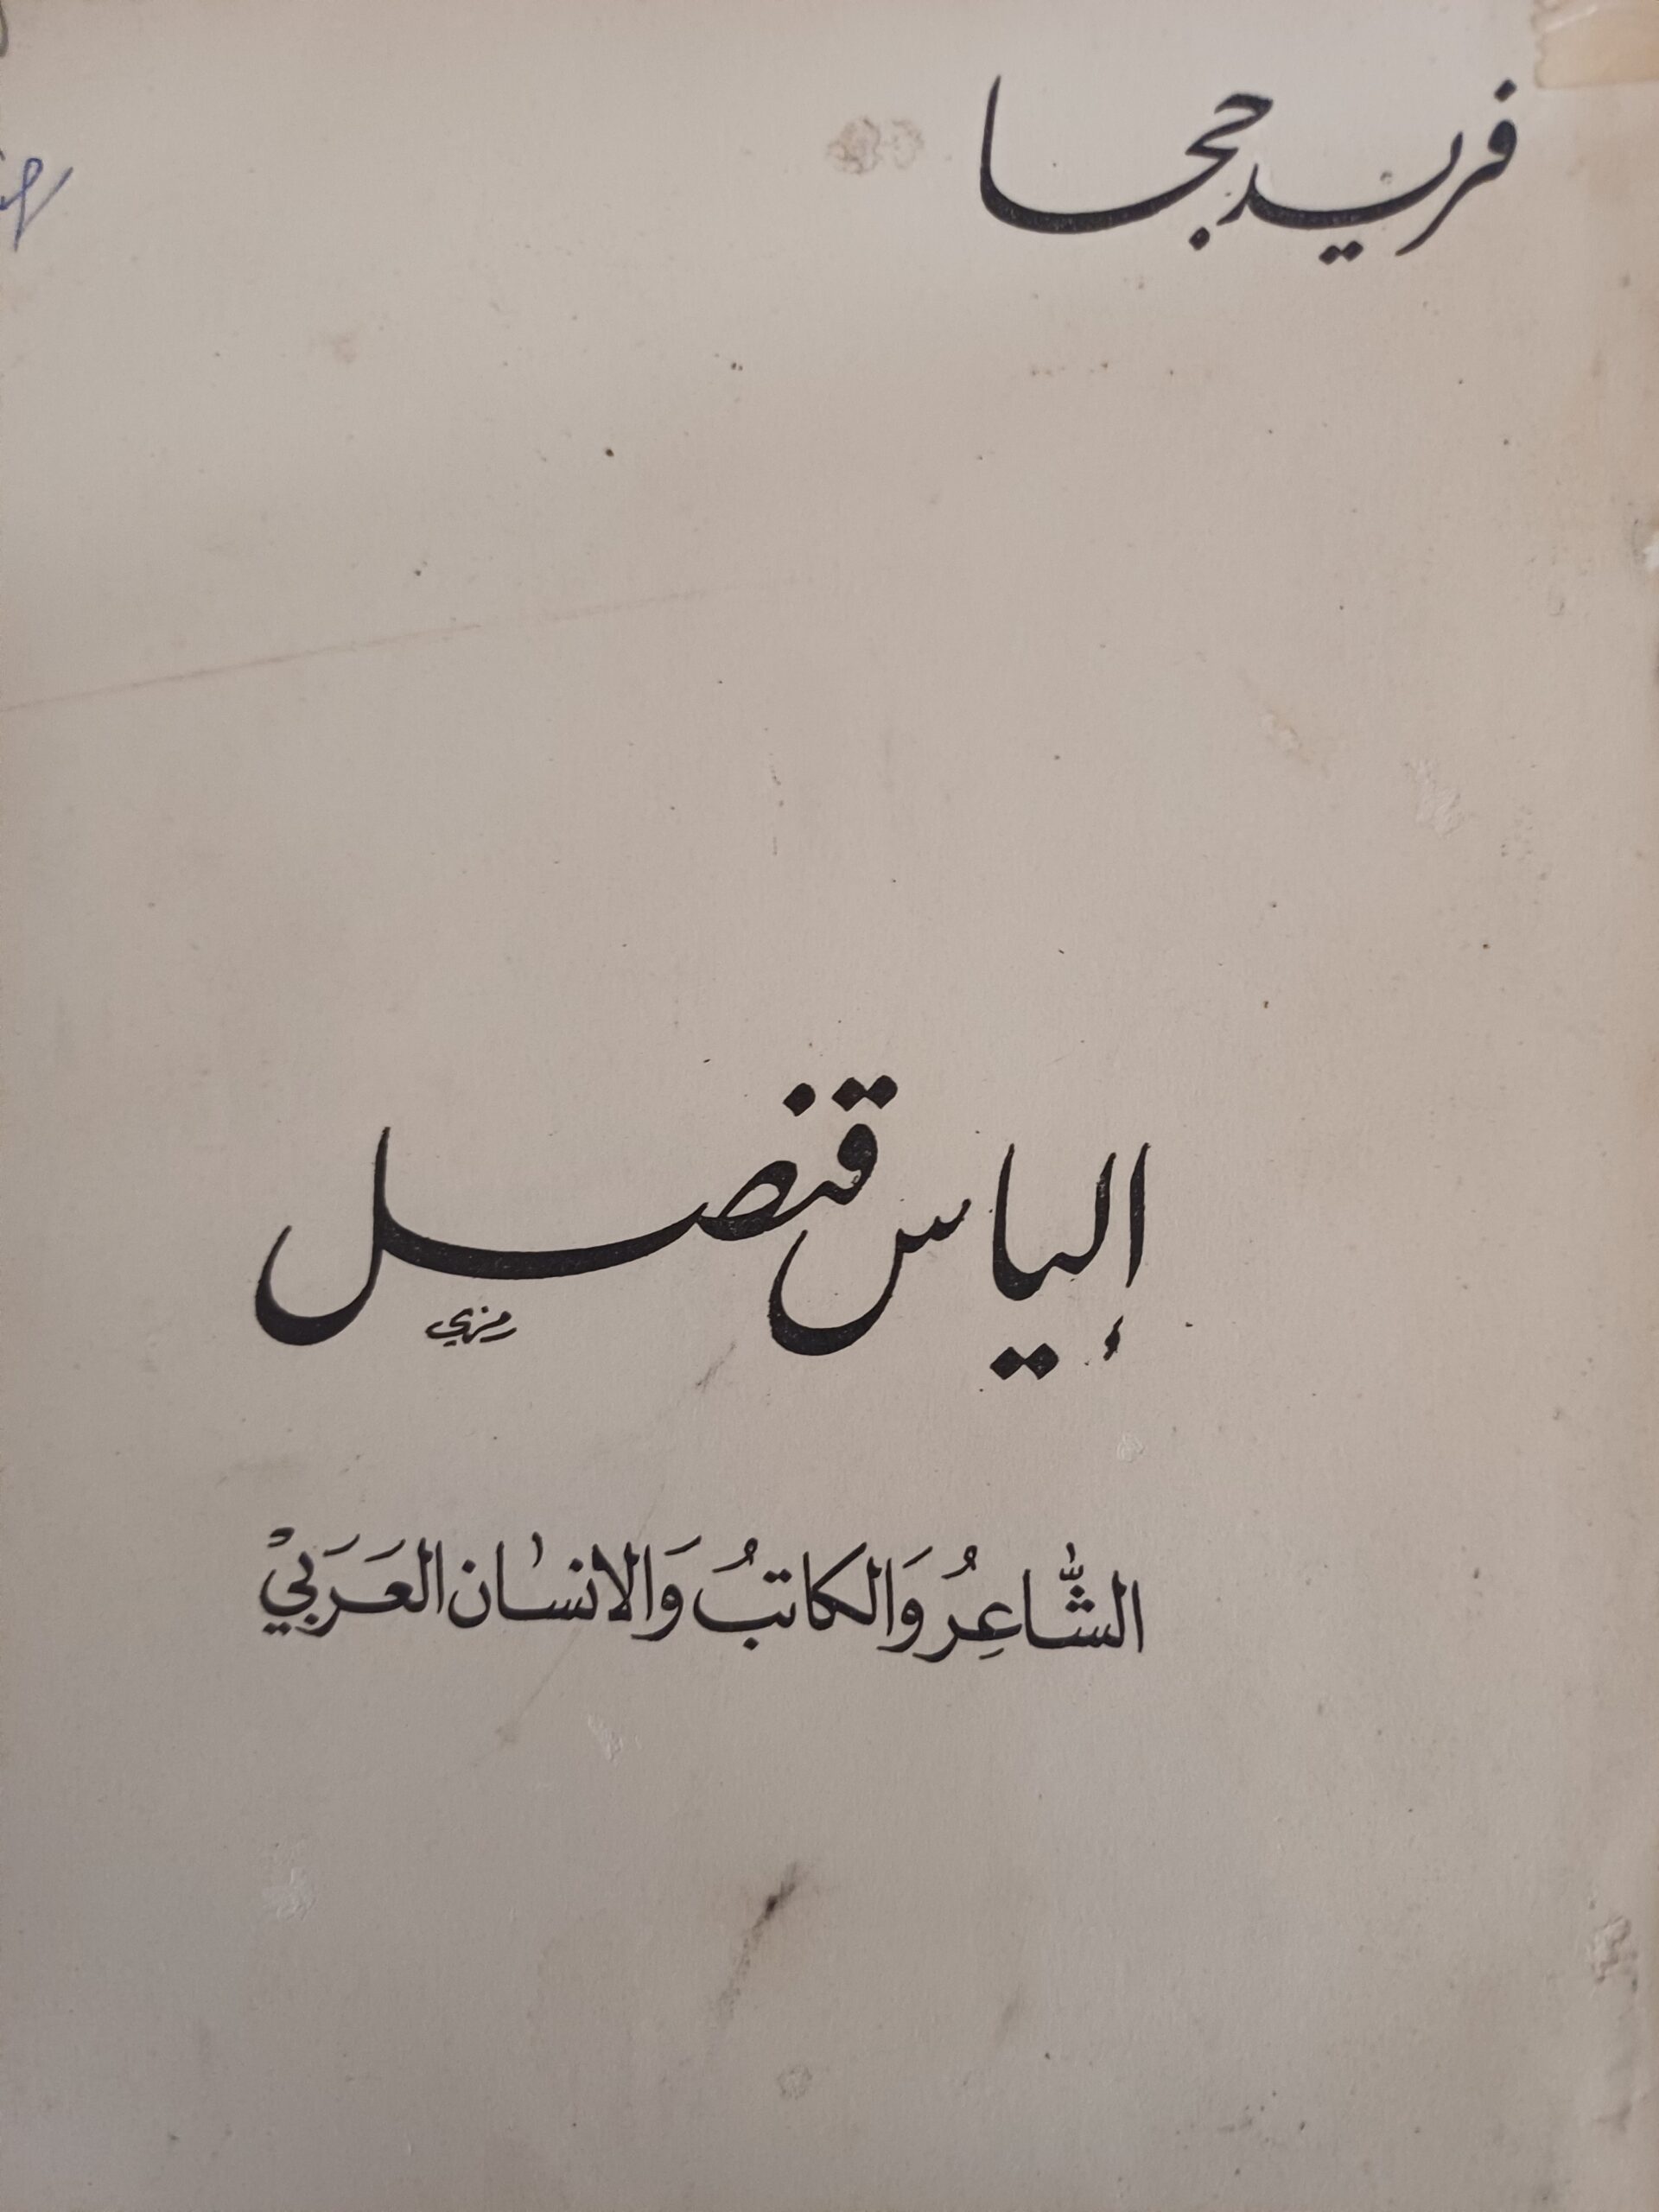 فريد جحا
إلياس قنصل
رمزي
الشَّاعِرُ وَالكاتبُ وَالانسَان العَرَبيْ